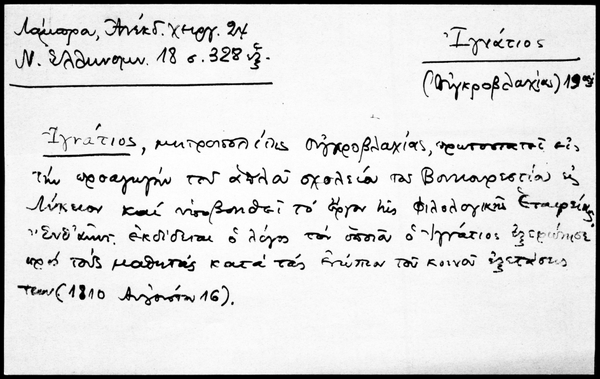 Λάμπρου, Ἀνέκδ. χειργ. 24
Ν. Ἑλληνομν. 18 σ. 328 ἑξ.
Ἰγνάτιος
(Οὐγκροβλαχίας) 19ος
Ἰγνάτιος, μητροπολίτης Οὐγκροβλαχίας, πρωτοστατεῖ εἰς
τὴν προαγωγὴν τοῦ ἁπλοῦ σχολείου τοῦ Βουκουρεστίου εἰς
Λύκειον καὶ ὑποβοηθεῖ τὸ ἔργον τῆς Φιλολογικῆς Ἑταιρείας.
ἐκδίδεται ὁ λόγος τὸν ὁποῖον ὁ Ἰγνάτιος ἐξεφώνησε
πρὸς τοὺς μαθητὰς κατὰ τὰς ἐνώπιον τοῦ κοινοῦ ἐξετάσεις
των (1810 Αὐγούστου 16).